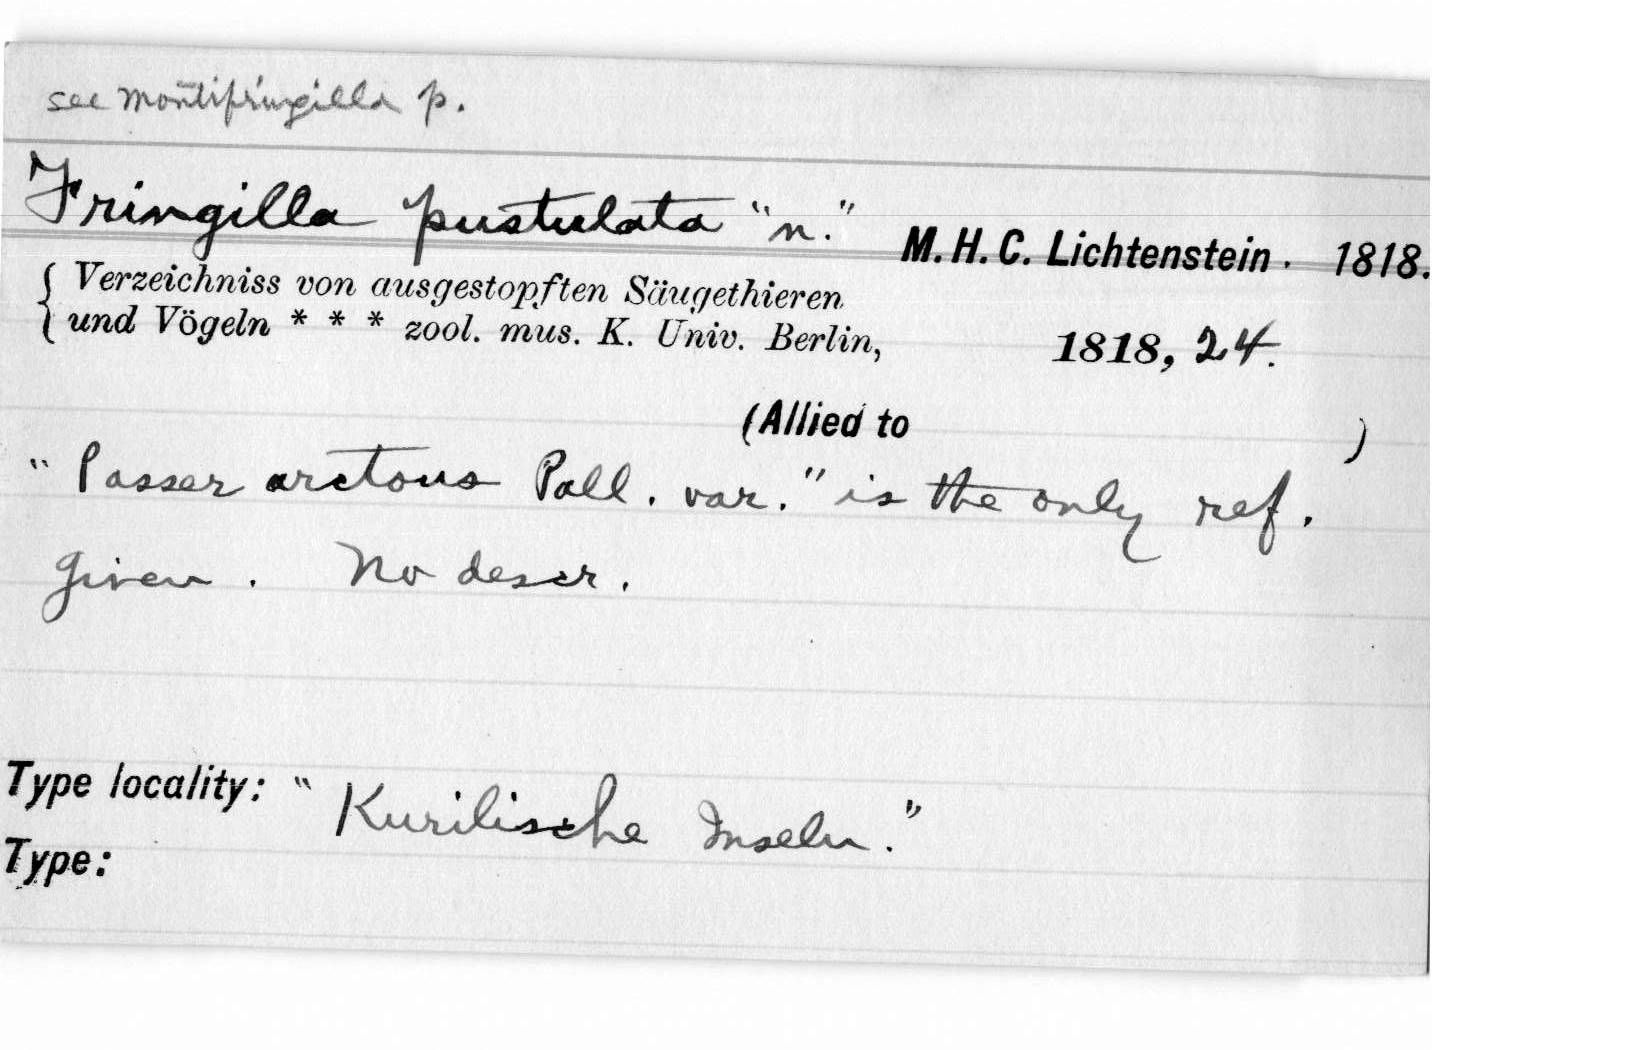 see montifringilla p.
Fringilla pustulata "n." M. H. C. Lichtenstein. 1818.
{ Verzeichniss von ausgestopften Säugethieren
{ und Vögeln * * * zool. mus. K. Univ. Berlin, 1818, 24.
(Allied to )
"Passer arctous Pall. var." is the only ref.
given. No descr.
Type locality: "Kurilische Inseln."
Type: